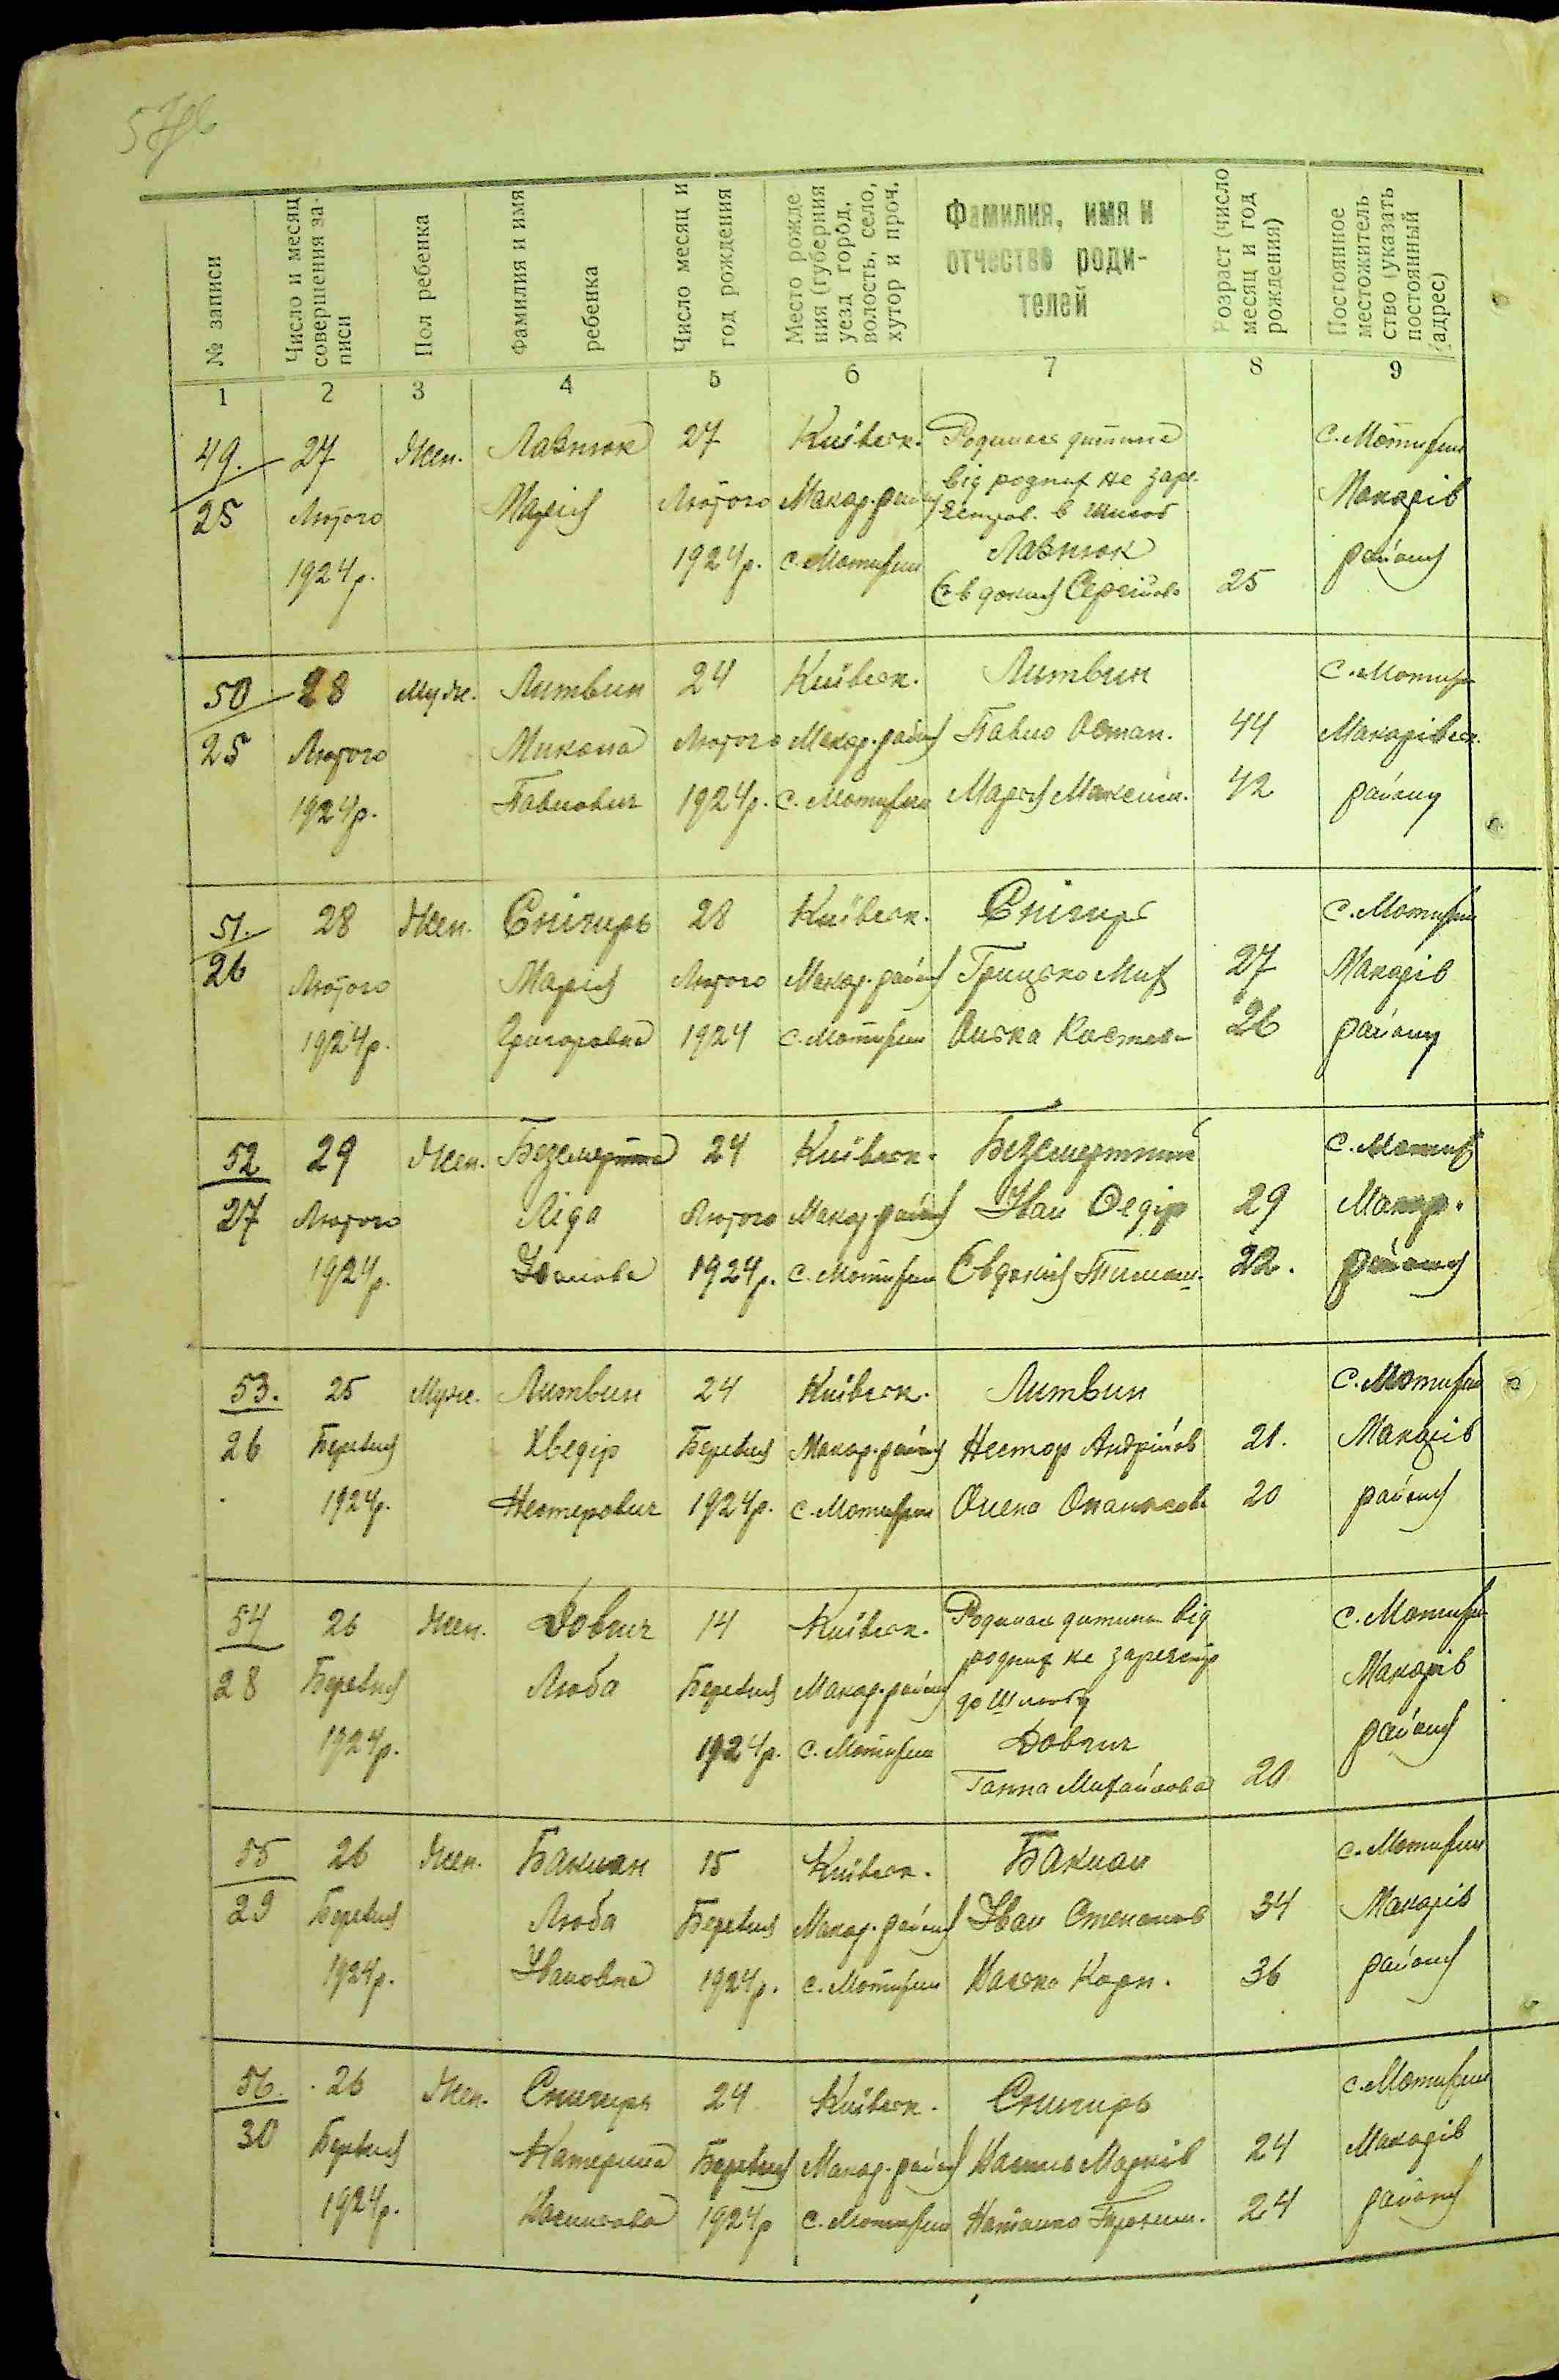 № записи
Число и месяц совершения за-писи
Пол ребенка
Фамилия и имя ребенка
Число месяц и год рождения
Место рожде ния (губерния уезд город, волость, село, хутор и проч.
Фамилия, имя и отчество роди-телей
Возраст (число месяц и год рождения)
Постоянное местожитель ство (указать постоянный адрес)
1 2 3 4 5 6 7 8 9
49. 27 Жен. Лавнюк 27 Київськ. Родилась дитина с. Мотижин
від родных не заре-
25 Лютого Марія Лютого Макар. району в Шлюб Макарів
1924р. 1924р. с. Мотижин Лавнюк району
Євдокия Сергійова 25
50 28 Муж. Литвин 24 Київськ. Литвин с. Мотиж
25 Лютого Микола Лютого Макар. район Павло Остап. 44 Макарівск.
1924р. Павлович 1924р. с. Мотижин Марія Максим. 42 району
51. 28 Жен. Снігирь 28 Київськ. Снігирь с. Мотижин
26 Лютого Марія Лютого Макар. район Грицько Мих 27 Макарів
1924р. Григоровна 1924 с. Мотижин 26 району
52 29 Жен. Безсмертна 24 Київськ. Безсмертний с. Мотиж
27 Лютого Ліда Лютого Макар. район Іван Федір 29 Макар.
1924р. Іванова 1924р. с. Мотижин Євдокія Тимош. 22. району
53. 25 Муж. Литвин 24 Київськ. Литвин с. Мотижин
26 Березня Хведір Березня Макар. район Нестор Андріїов 21. Макарів
1924р. Нестерович 1924р. с. Мотижин Олена Опанасов 20 району
54 26 Жен. Довгич 14 Київськ. Родилась дитина від с. Мотижин
родных не зарегістр
28 Березня Люба Березня Макар. район до Шлюбу Макарів
1924р. 1924р. с. Мотижин Довгич району
Ганна Михайлова 20
55 26 Жен. Баклан 15 Київськ. Баклан с. Мотижин
29 Березня Люба Березня Макар. район Іван Степанов 34 Макарів
1924р. Івановна 1924р. с. Мотижин Корн. 36 району
56. 26 Жен. Снигирь 24 Київськ. Снигирь с. Мотижин
30 Березня Катерина Березня Макар. район Марків 24 Макарів
1924р. 1924р с. Мотижин Наталка 24 району